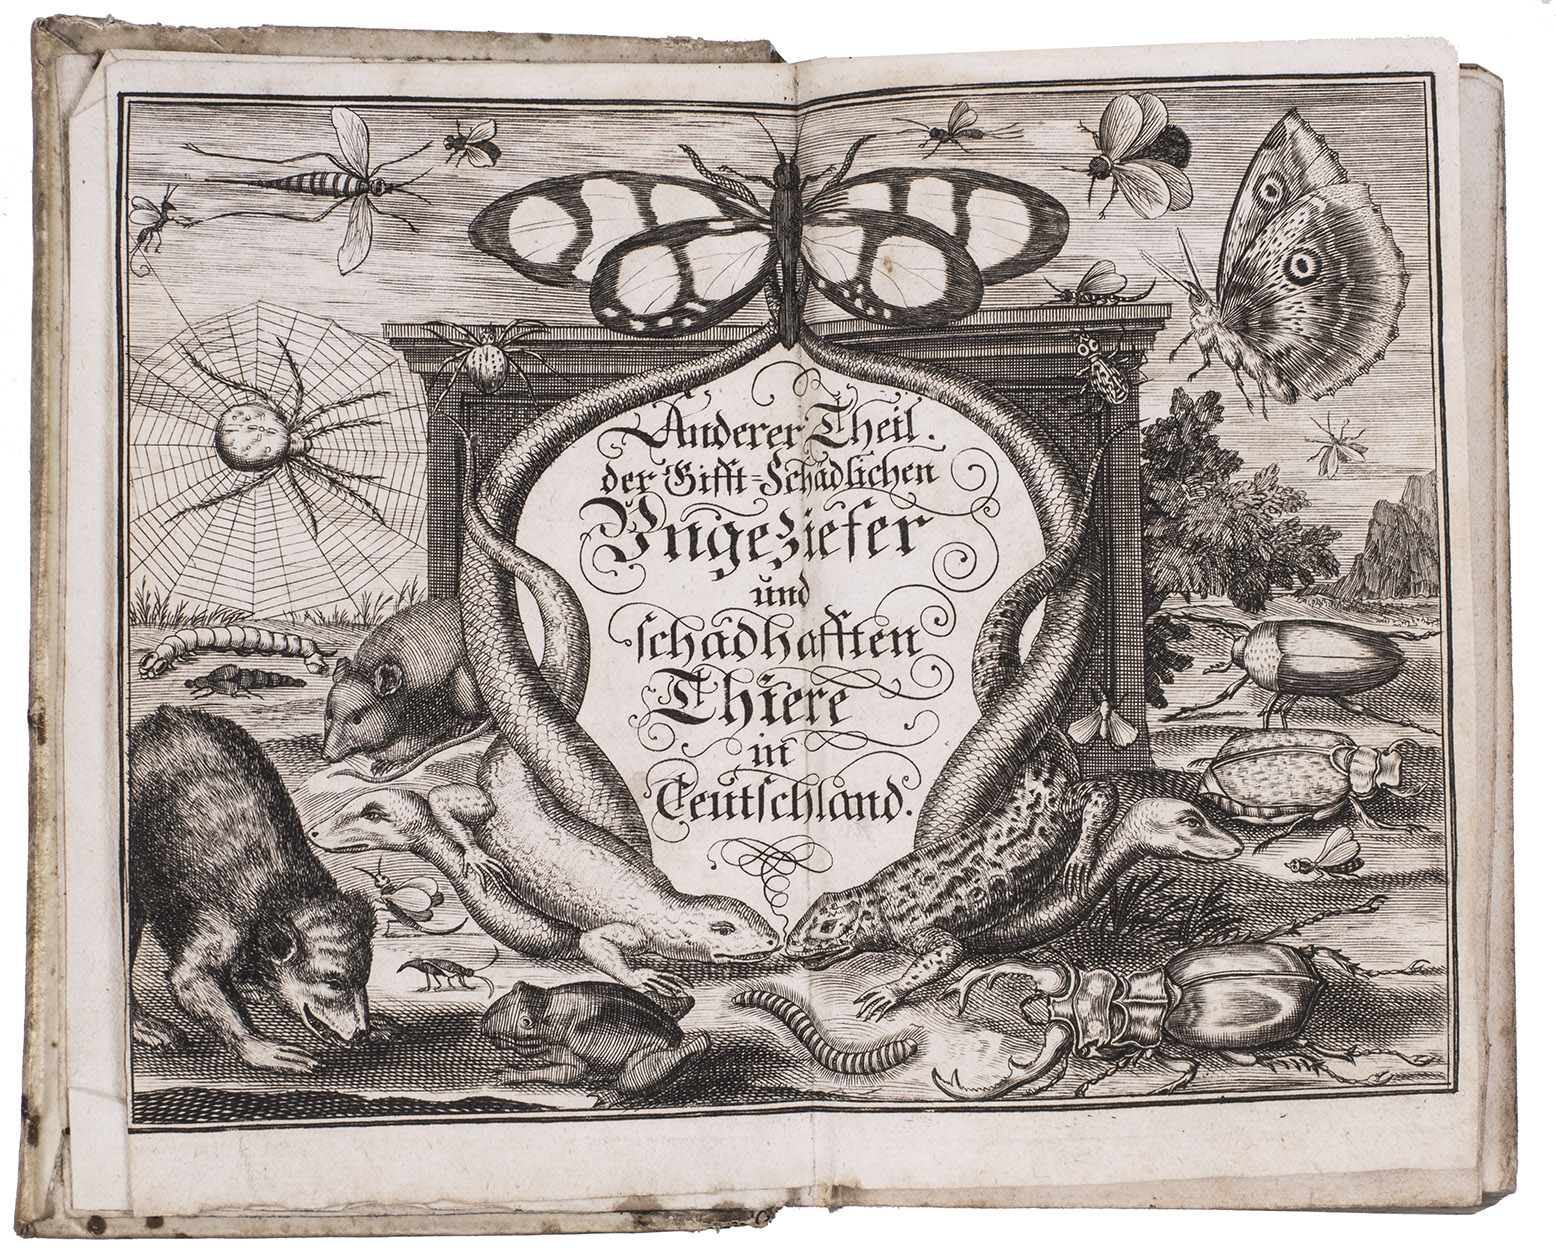 Anderer Theil.
der Gifft=Schädlichen
Vngeziefer
und
schädhafften
Thiere
in
Teutschland.